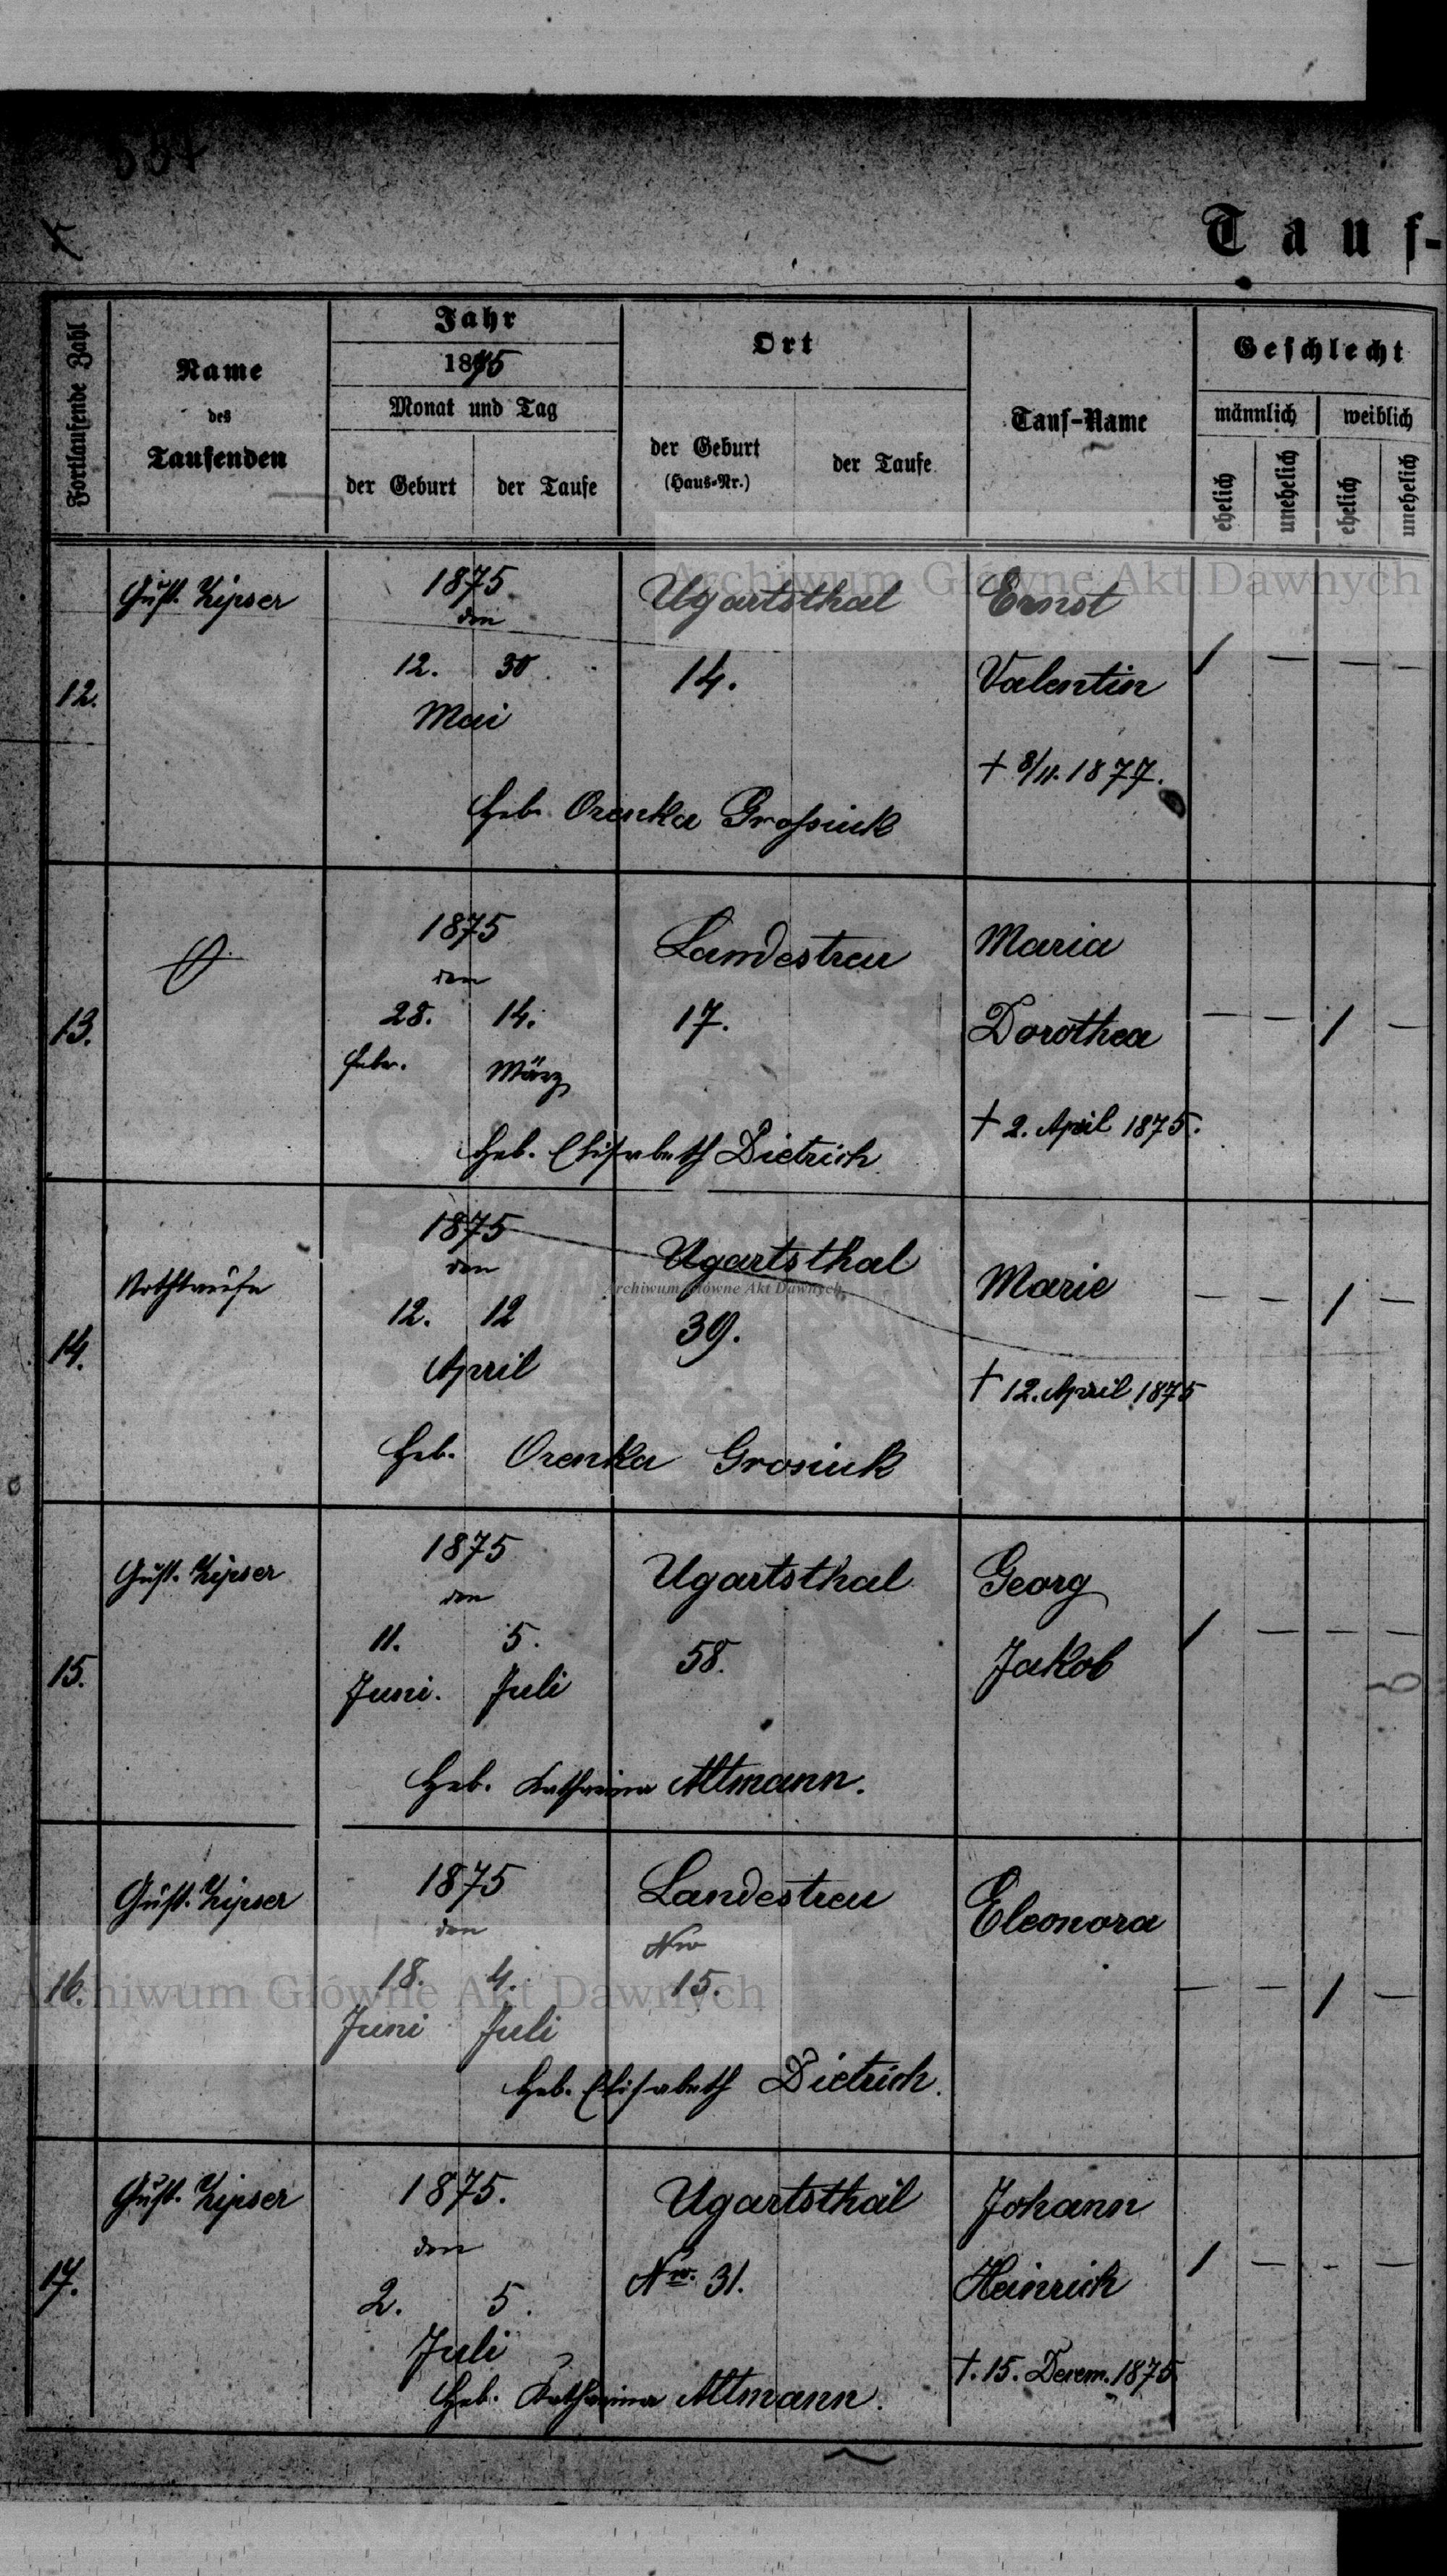 557
Tauf-
Fortlaufende Zahl
Name
des
Taufenden
Jahr
1875
Monat und Tag
der Geburt
der Taufe
Ort
der Geburt
(Haus-Nr.)
der Taufe
Tauf-Name
Geschlecht
männlich
weiblich
ehelich
unehelich
ehelich
unehelich
Archiwum Główne Akt Dawnych
12.
Gust. Zipser
1875
den
12. 30.
Mai
Ugartsthal
14.
Ernst
Valentin
† 8/11. 1877.
/ — — —
Heb. Orenka Grossiuk
13.
1875
den
28. 14.
Febr. März
Landestreu
17.
Maria
Dorothea
† 2. April 1875.
— — / —
Heb. Elisabeth Dietrich
14.
Nothtaufe
1875
den
12. 12
April
Ugartsthal
Archiwum Główne Akt Dawnych
39.
Marie
† 12. April 1875
— — / —
Heb. Orenka Grosiuk
15.
Gust. Zipser
1875
den
11. 5.
Juni. Juli
Ugartsthal
58.
Georg
Jakob
/ — — —
Heb. Katharina Altmann.
16.
Gust. Zipser
1875
den
18. 4.
Juni Juli
Landestreu
Nro
15.
Eleonora
— — / —
Archiwum Główne Akt Dawnych
Heb. Elisabeth Dietrich.
17.
Gust. Zipser
1875.
den
2. 5.
Juli
Ugartsthal
Nro. 31.
Johann
Heinrich
†. 15. Decem. 1875
/ — - —
Heb. Katharina Altmann.